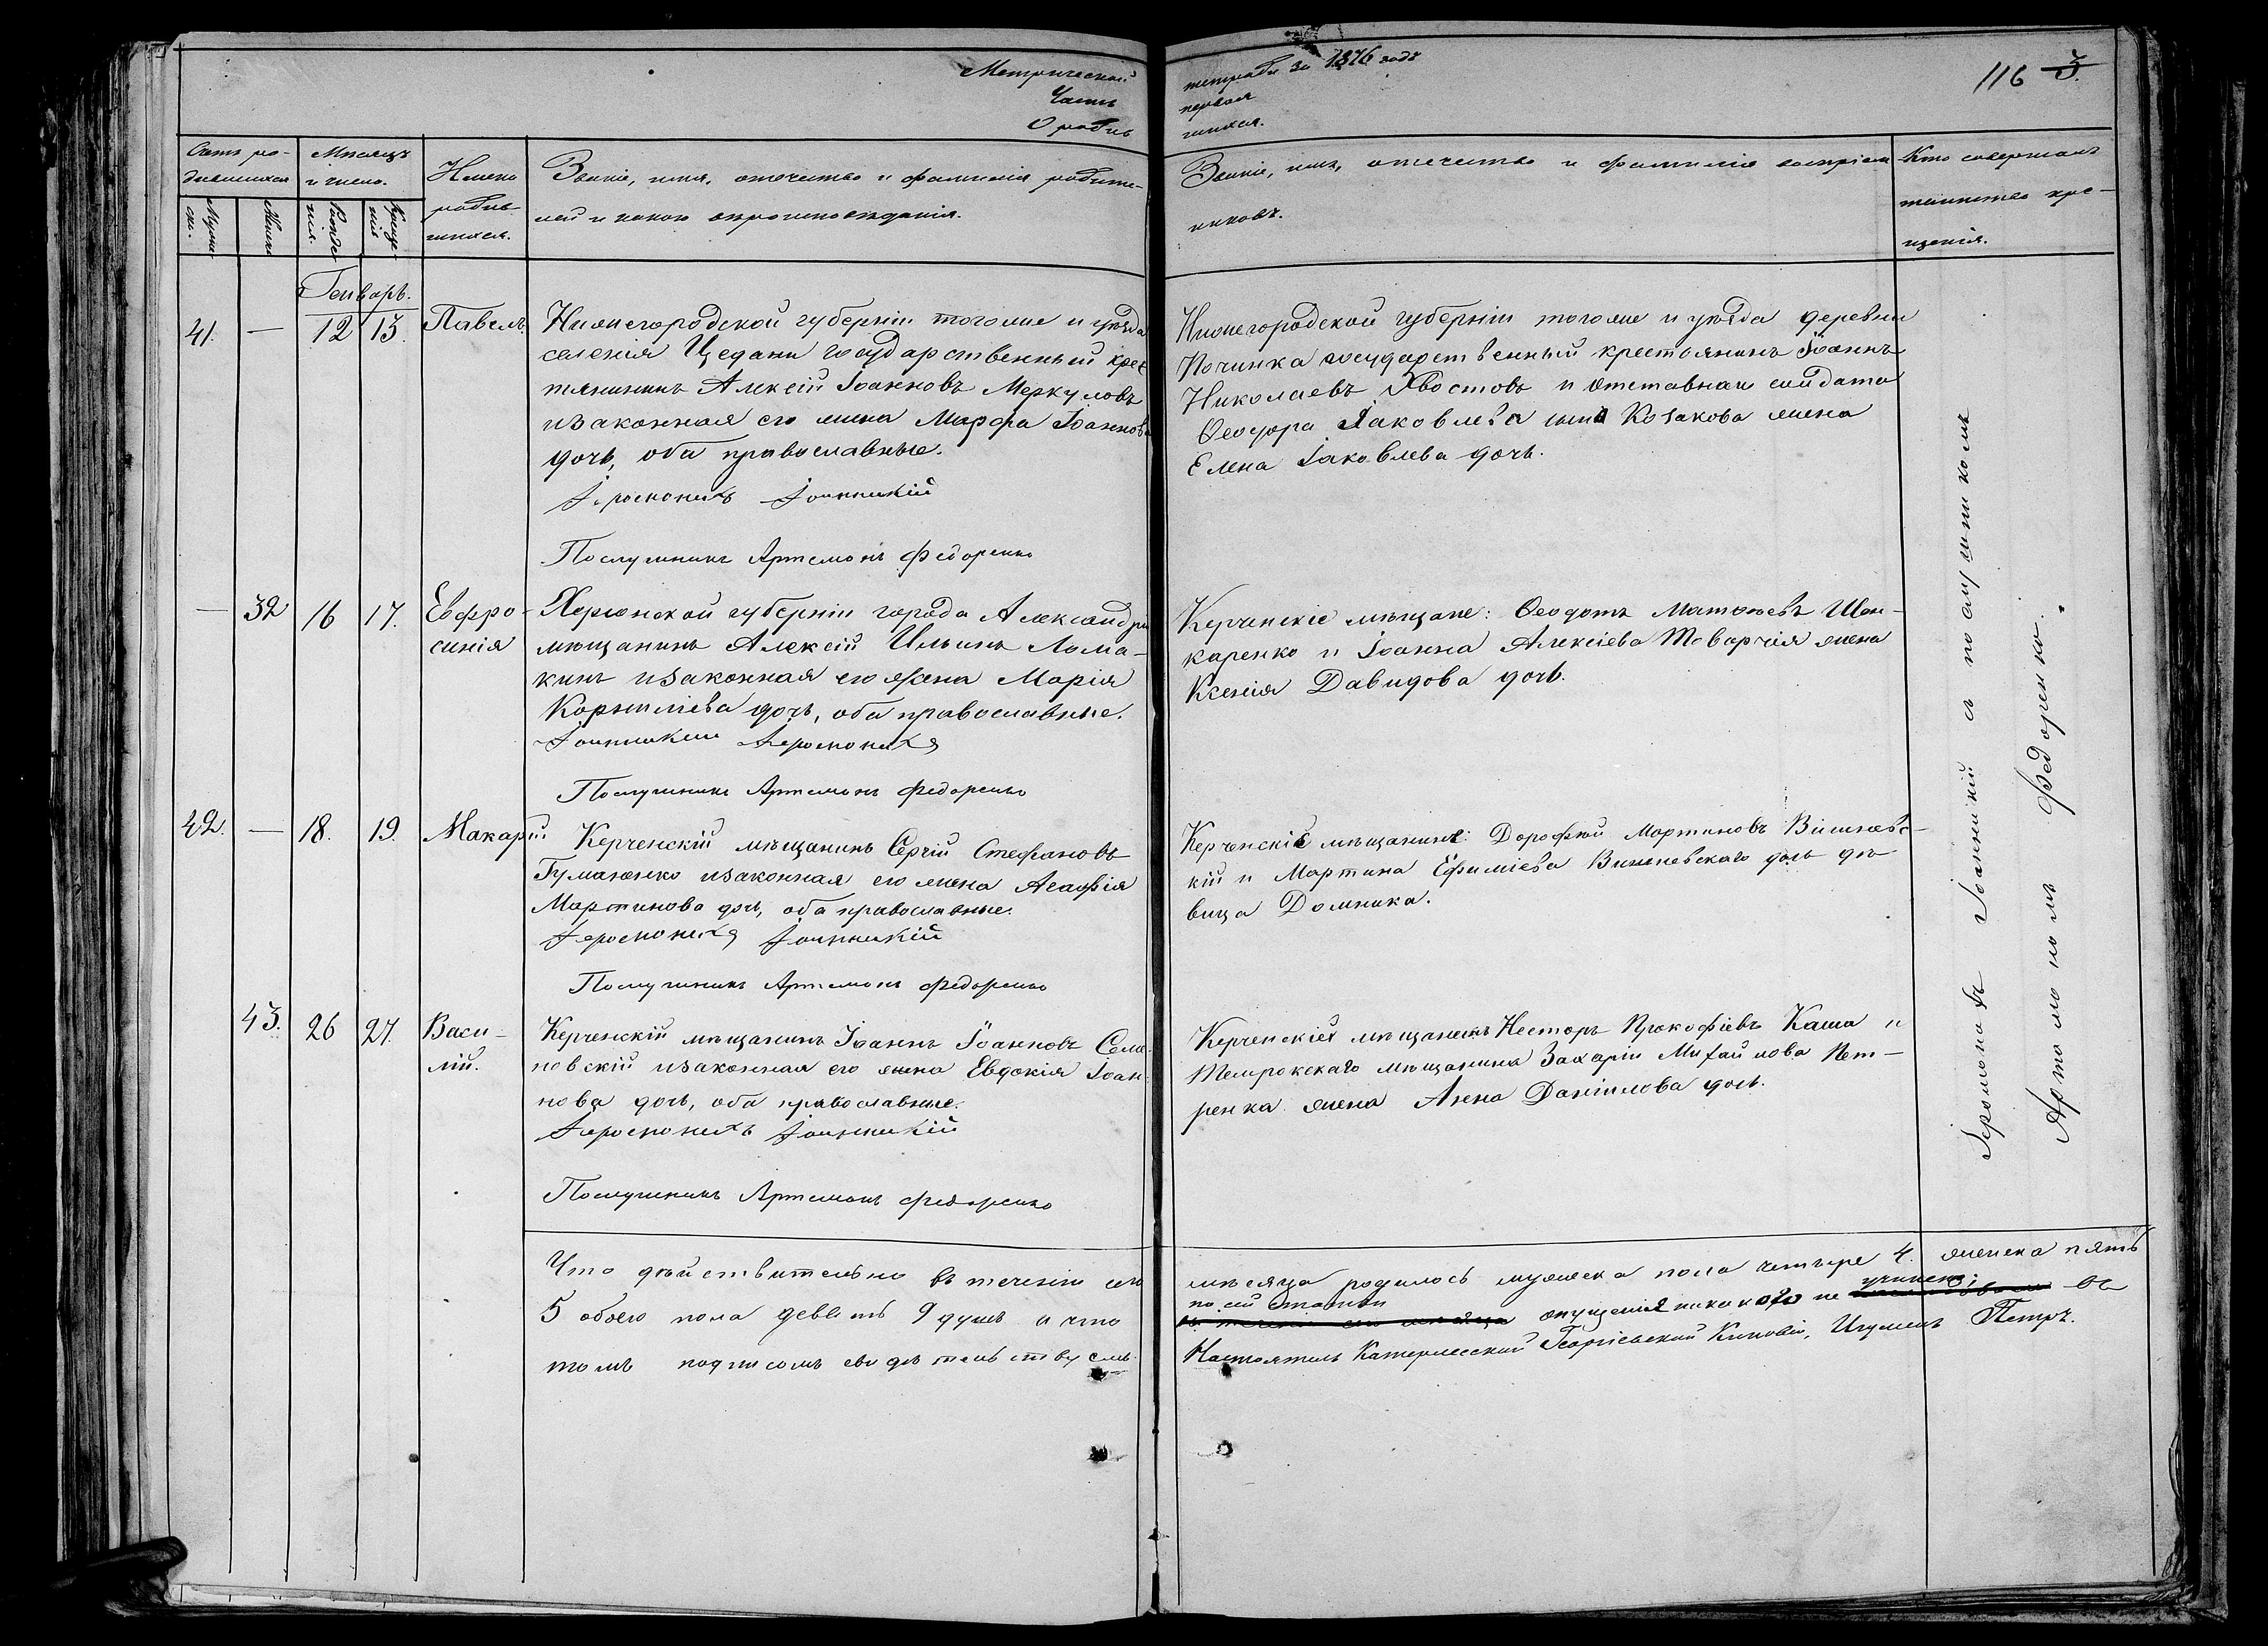 Метрической
Часть
О родив
тетради за 1876 годъ
первая
шихся.
116 3.
Счетъ ро-
дившихся
Муже-
ск.
Женск
Мѣсяцъ
и число.
Рожде
нія.
Креще-
нія
Имена
родив-
шихся.
Званіе, имя, отечество и фамилія родите-
лей и какого вѣроисповѣданія.
Званіе, имя, отечество и фамилія воспріем
никовъ.
Кто совершалъ
таинство кре-
щенія.
Генварь.
41. — 12 13. Павелъ.
Нижегородской губерніи тогоже и уѣзда
селенія Цедани государственный крес
тьянинъ Алексій Іоанновъ Меркуловъ
изаконная его жена Марфа Іоаннова
дочь, оба православные.
Іеромонахъ Іоанникій
Послушникъ Артемонъ Федоренко
Нижегородской губерніи тогоже и уѣзда деревни
Починка государственный крестьянинъ Іоаннъ
Николаевъ Хвостовъ и отставнаго солдата
Ѳеодора Іаковлева сына Козакова жена
Елена Іаковлева дочь.
— 32 16 17. Евфро-
синія
Херсонской губерніи города Александріи
мѣщанинъ Алексій Ильинъ Лома-
кинъ изаконная его жена Марія
Корниліева дочь, оба православные.
Іоанникій Іеромонахъ
Послушникъ Артемонъ Федоренко
Керченскіе мѣщане: Ѳеодотъ Матѳеевъ Шен-
каренко и Іоанна Алексіева Товарчія жена
Ксенія Давидова дочь.
42. — 18. 19. Макарій
Керченскій мѣщанинъ Сергій Стефановъ
Гуманенко изаконная его жена Агафія
Мартинова дочь, оба православные.
Іеромонахъ Іоанникій
Послушникъ Артемонъ Федоренко
Керченскіе мѣщанинъ: Дорофей Мартиновъ Вишневс-
кій и Мартина Ефиміева Вишневскаго дочь дѣ-
вица Домника.
43. 26 27. Васи-
лій.
Керченскій мѣщанинъ Іоаннъ Іоанновъ Семе-
новскій изаконная его жена Евдокія Іоан-
нова дочь, оба православные.
Іеромонахъ Іоанникій
Послушникъ Артемонъ Федоренко
Керченскіе мѣщанинъ Несторъ Прокофіевъ Каша и
Темрюкскаго мѣщанина Захарія Михайлова Пет-
ренка жена Анна Даніилова дочь.
Іеромонахъ Іоанникій съ послушникомъ
Артемономъ Федоренко.
Что дѣйствительно въ теченіи сего
5 обоего пола девять 9 душъ и что
томъ подписомъ свидѣтельствуемъ
мѣсяца родилось мужеска пола четыре 4. женска пять
по сей статьи
учинено;
опущенія никакого не въ
Настоятель Катерлесской Георгіевской Киновіи, Игуменъ Петръ.